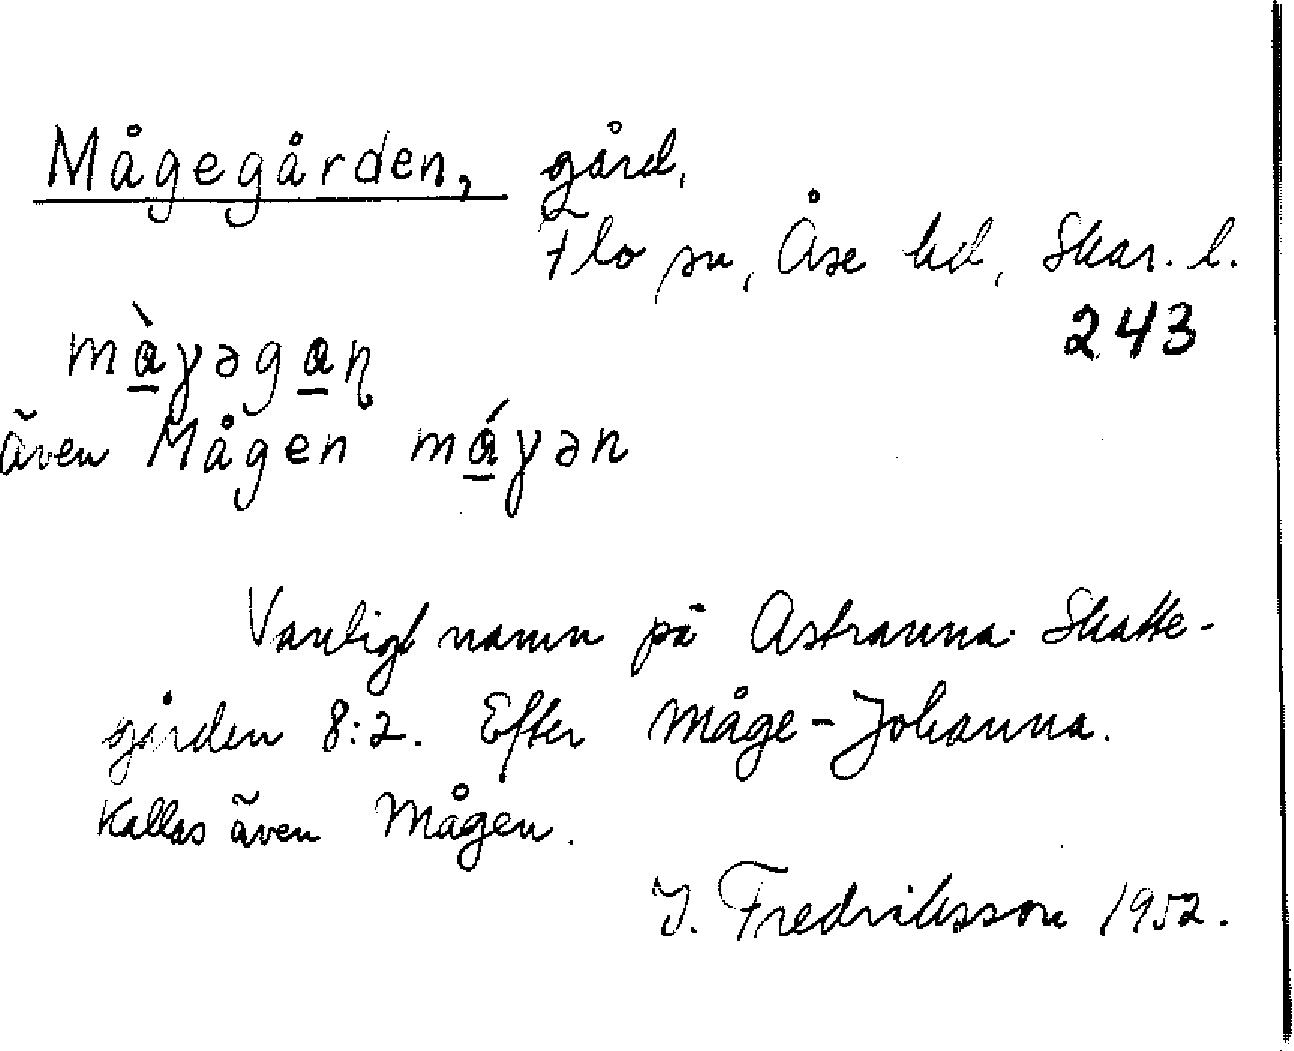 Mågegården, gård,
Flo sn, Åse hd, Skar. l.
243
mà̱γəga̱ɳ
även Mågen má̱γən
Vanligt namn på Astranna Skatte-
gården 8:2. Efter Måge-Johanna.
Kallas även Mågen.
I. Fredriksson 1952.